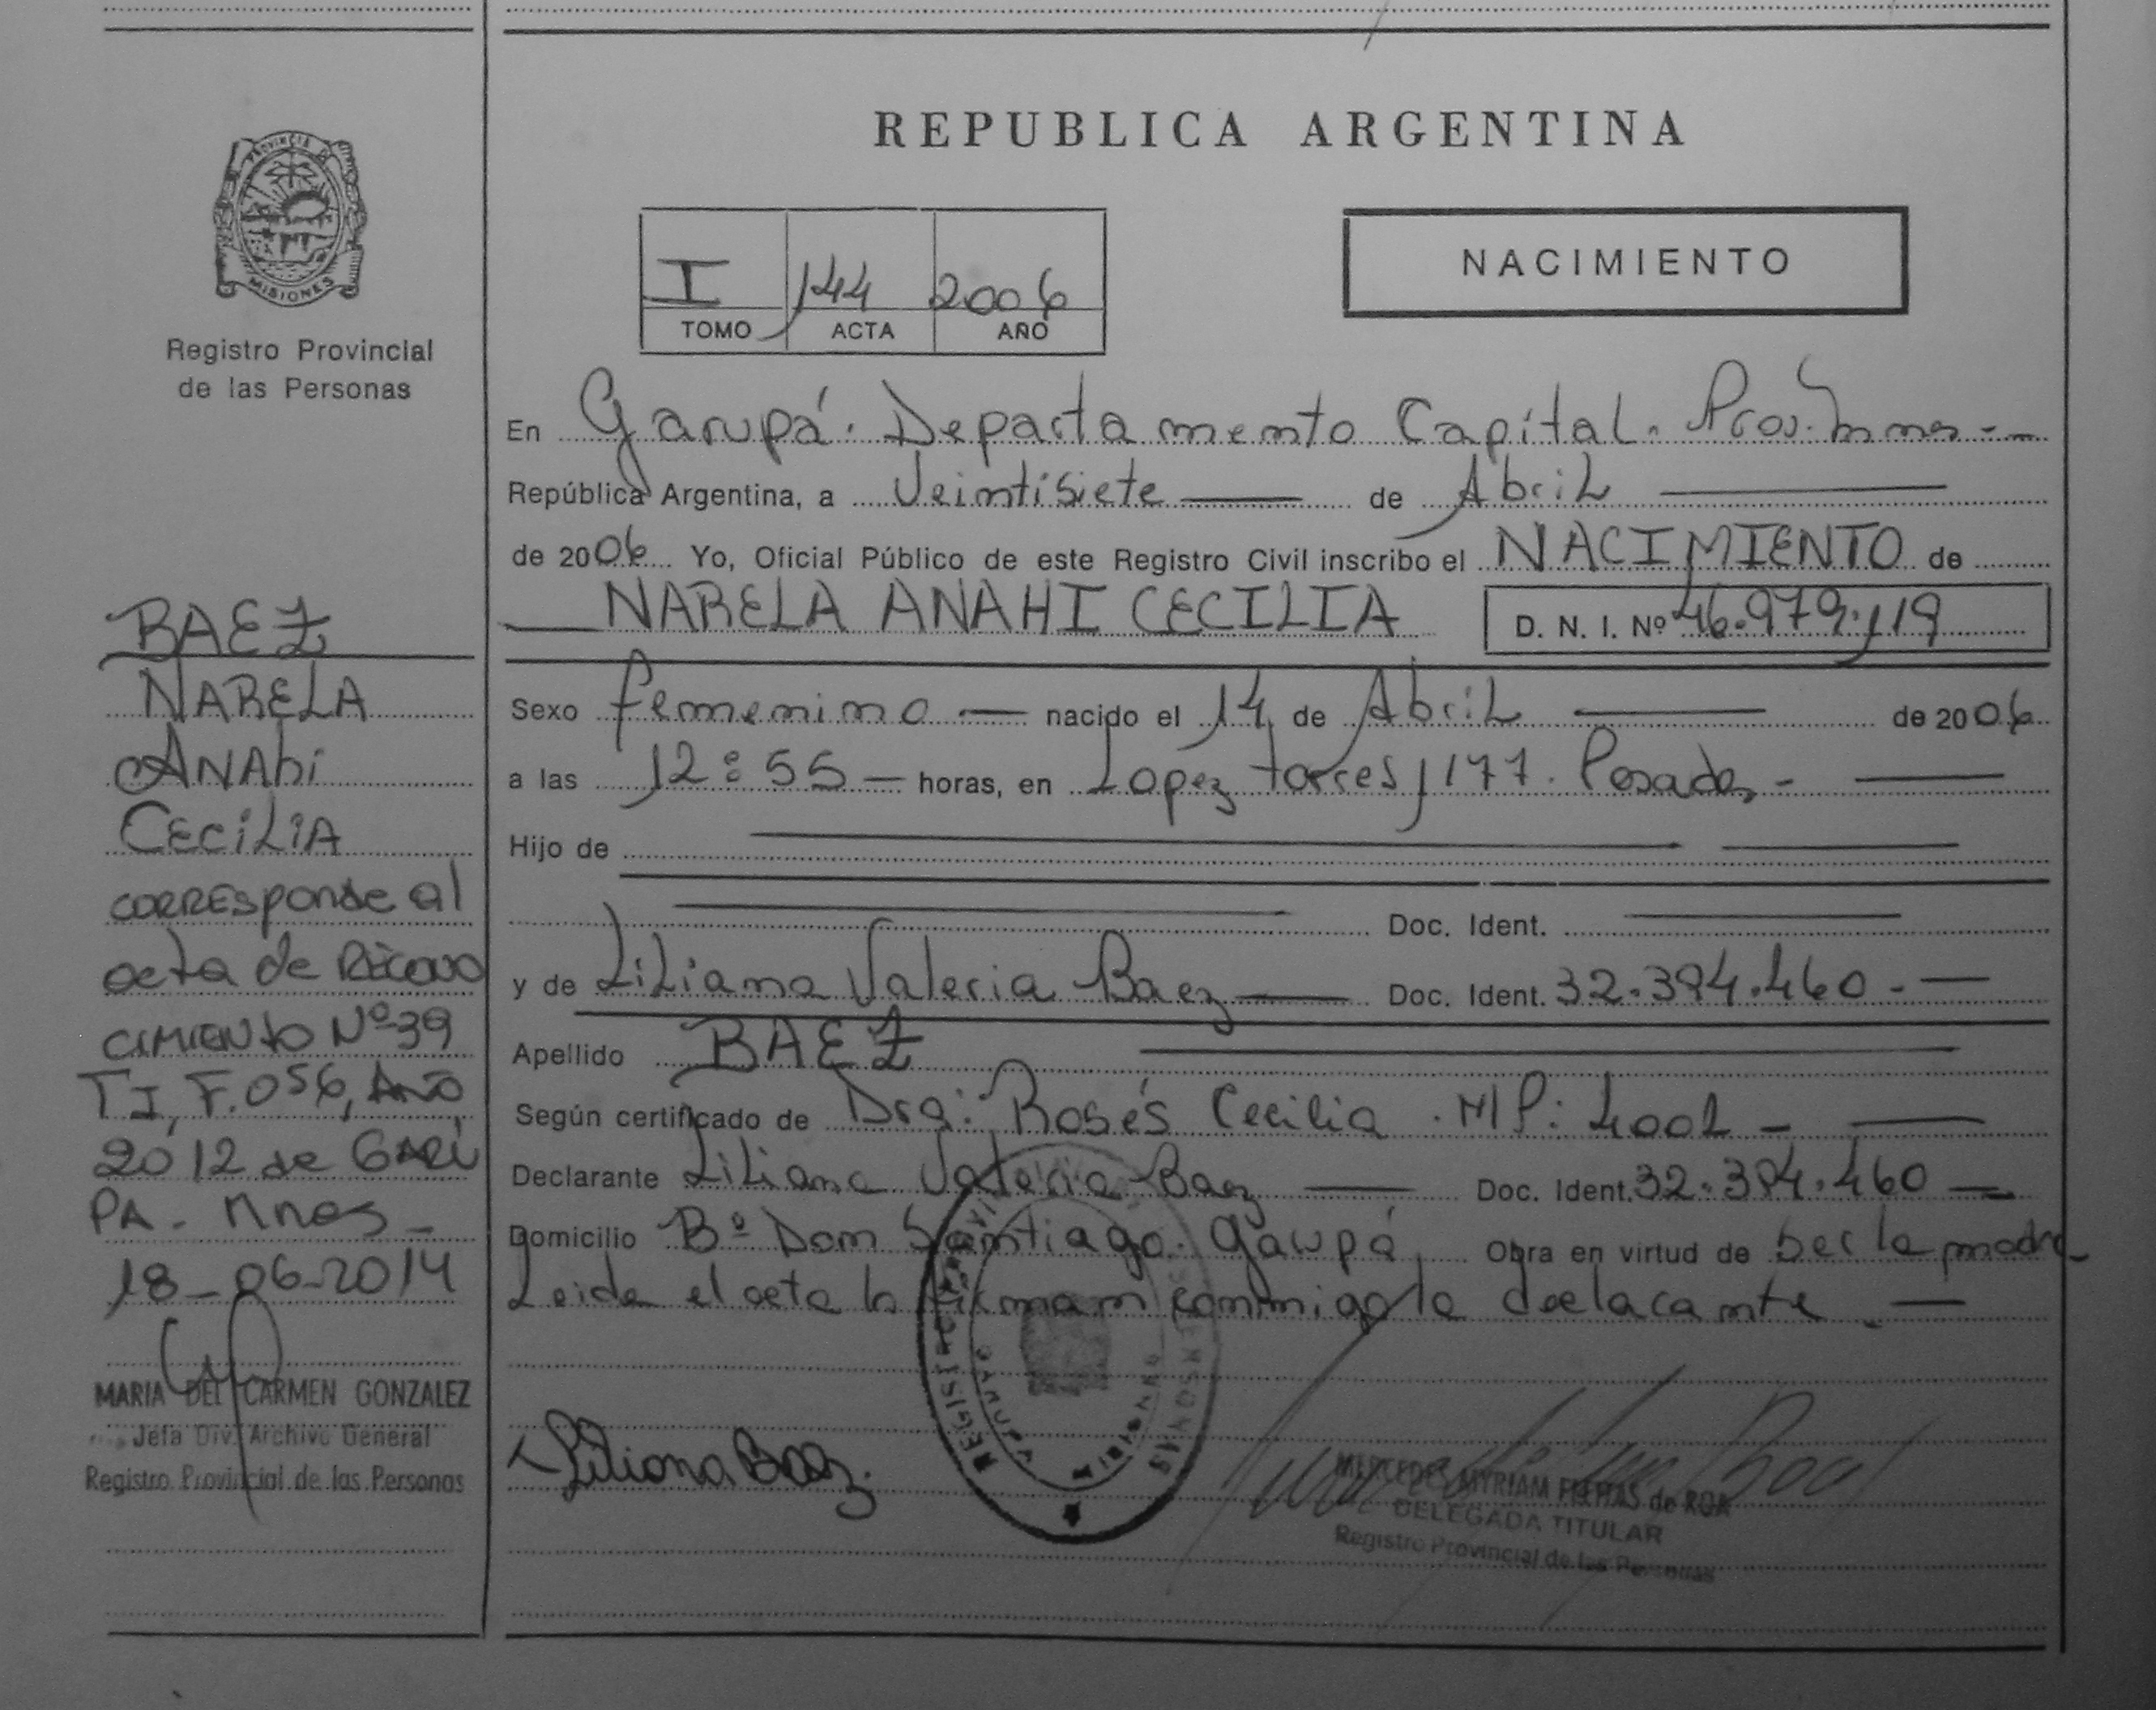 REPUBLICA ARGENTINA
PROVINCIA DE
MISIONES
Registro Provincial
de las Personas
I 144 2006
TOMO ACTA AÑO
NACIMIENTO
En Garupá. Departamento Capital. Prov. Mnes
República Argentina, a Veintisiete de Abril
de 2006 Yo, Oficial Público de este Registro Civil inscribo el NACIMIENTO de
NARELA ANAHI CECILIA D. N. I. Nº 46.979.119
Sexo femenino nacido el 14 de Abril de 2006
a las 12:55 horas, en Lopez torres 1177. Posadas
Hijo de
Doc. Ident.
y de Liliana Valeria Baez Doc. Ident. 32.394.460
Apellido BAEZ
Según certificado de Dra: Rosés Cecilia. M/P: 4002
Declarante Liliana Valeria Baez Doc. Ident. 32.394.460
Domicilio Bº Don Santiago. Garupá Obra en virtud de ser la madre
Leida el acta la firman conmigo la declarante
Liliana Baez
MERCEDES MYRIAM de ROA
DELEGADA TITULAR
Registro Provincial de las Personas
BAEZ
NARELA
ANAhi
CECiLiA
CORRESponde al
acta de RECONO
CIMIENTO Nº 39
TI, F.056, AÑO
2012 de GARU
PA. Mnes
18-06-2014
MARIA DEL CARMEN GONZALEZ
Jefa Div. Archivo General
Registro Provincial de las Personas